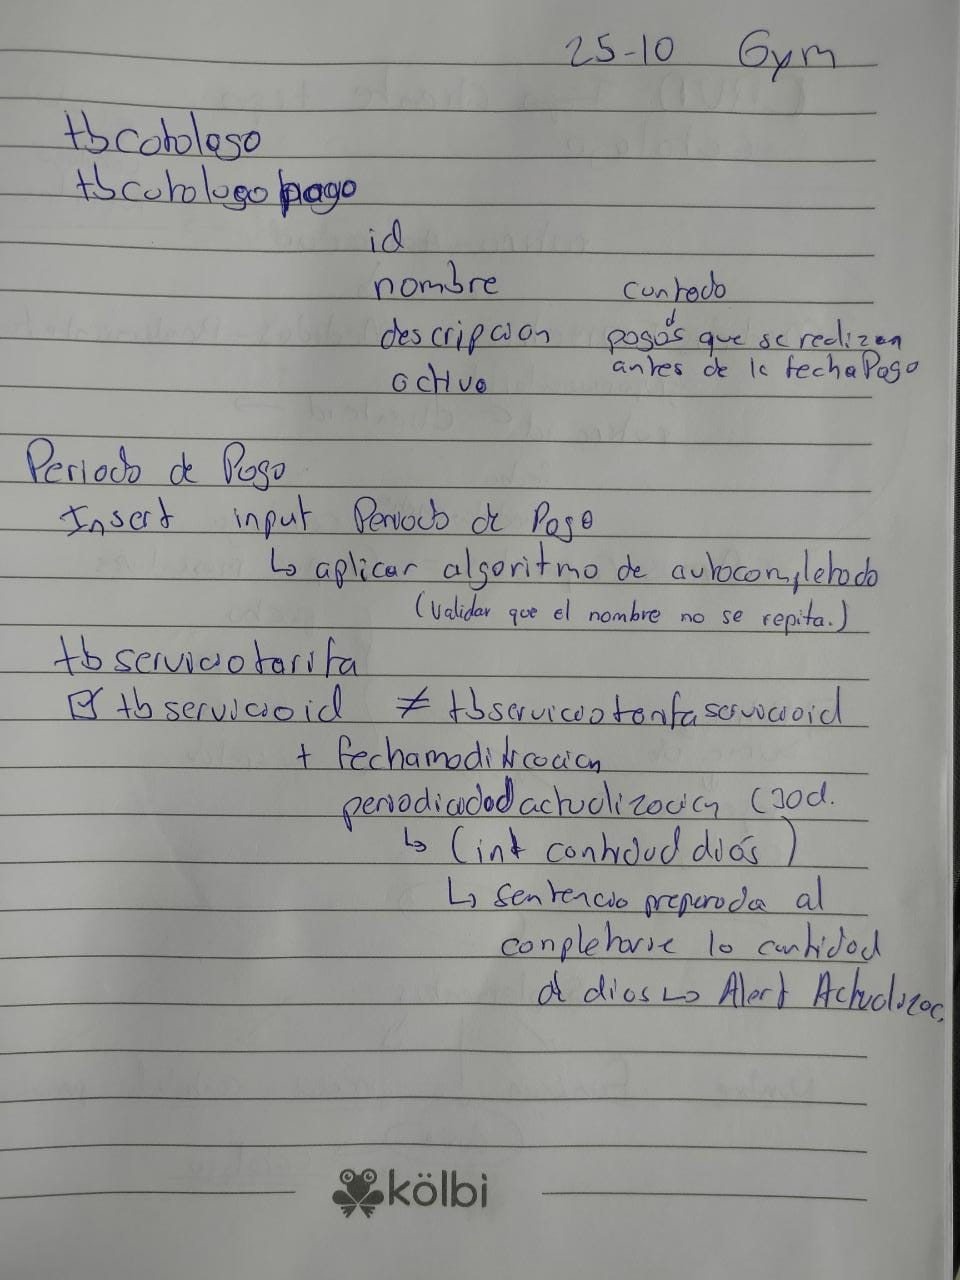 25-10 Gym
tbcatalogo
tbcatalogopago
id
nombre contado
descripcion pagos que se realizan
antes de la fechaPago
activo
Periodo de Pago
Insert input Periodo de Pago
↳ aplicar algoritmo de autocompletado
(Validar que el nombre no se repita.)
tbserviciotarifa
☑ tbservicioid ≠ tbserviciotarifaservicioid
+ fechamodificacion
periodicidadactualizacion (30d.
↳ (int cantidad días)
↳ sentencia preparada al
completarse la cantidad
de dias ↳ Alert Actualizac.
kölbi